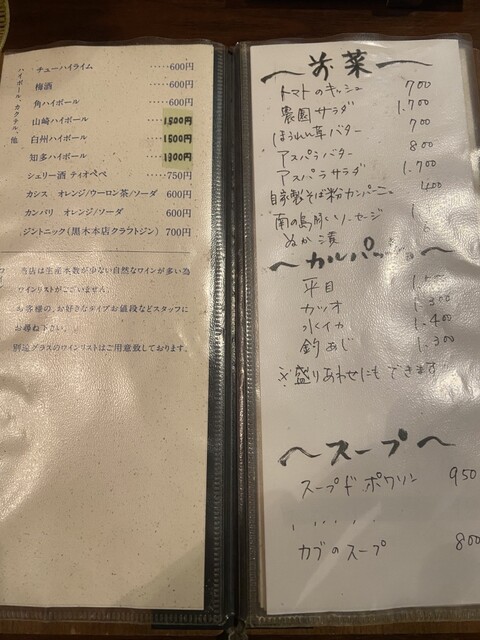 ハイボール、カクテル、他
チューハイライム ‥‥‥600円
梅酒 ‥‥‥600円
角ハイボール ‥‥‥600円
山崎ハイボール ‥‥‥1500円
白州ハイボール ‥‥‥1500円
知多ハイボール ‥‥‥1300円
シェリー酒 ティオペペ ‥‥‥750円
カシス オレンジ/ウーロン茶/ソーダ 600円
カンパリ オレンジ/ソーダ 600円
ジントニック(黒木本店クラフトジン) 700円
当店は生産本数が少ない自然なワインが多い為
ワインリストがございません。
お客様の、お好きなタイプお値段などスタッフに
お尋ね下さい。
別途グラスのワインリストはご用意致しております。
〜前菜〜
トマトのキッシュ 700
農園サラダ 1.700
ほうれん草バター 700
アスパラバター 800
アスパラサラダ 1.700
自家製そば粉カンパーニュ 400
南の島豚くんソーセージ
ぬか漬
〜カルパッチョ
平目
カツオ 1.300
水イカ 1.400
釣あじ 1.300
※盛りあわせにもできます
〜スープ〜
スープ ド ポワソン 950
カブのスープ 800